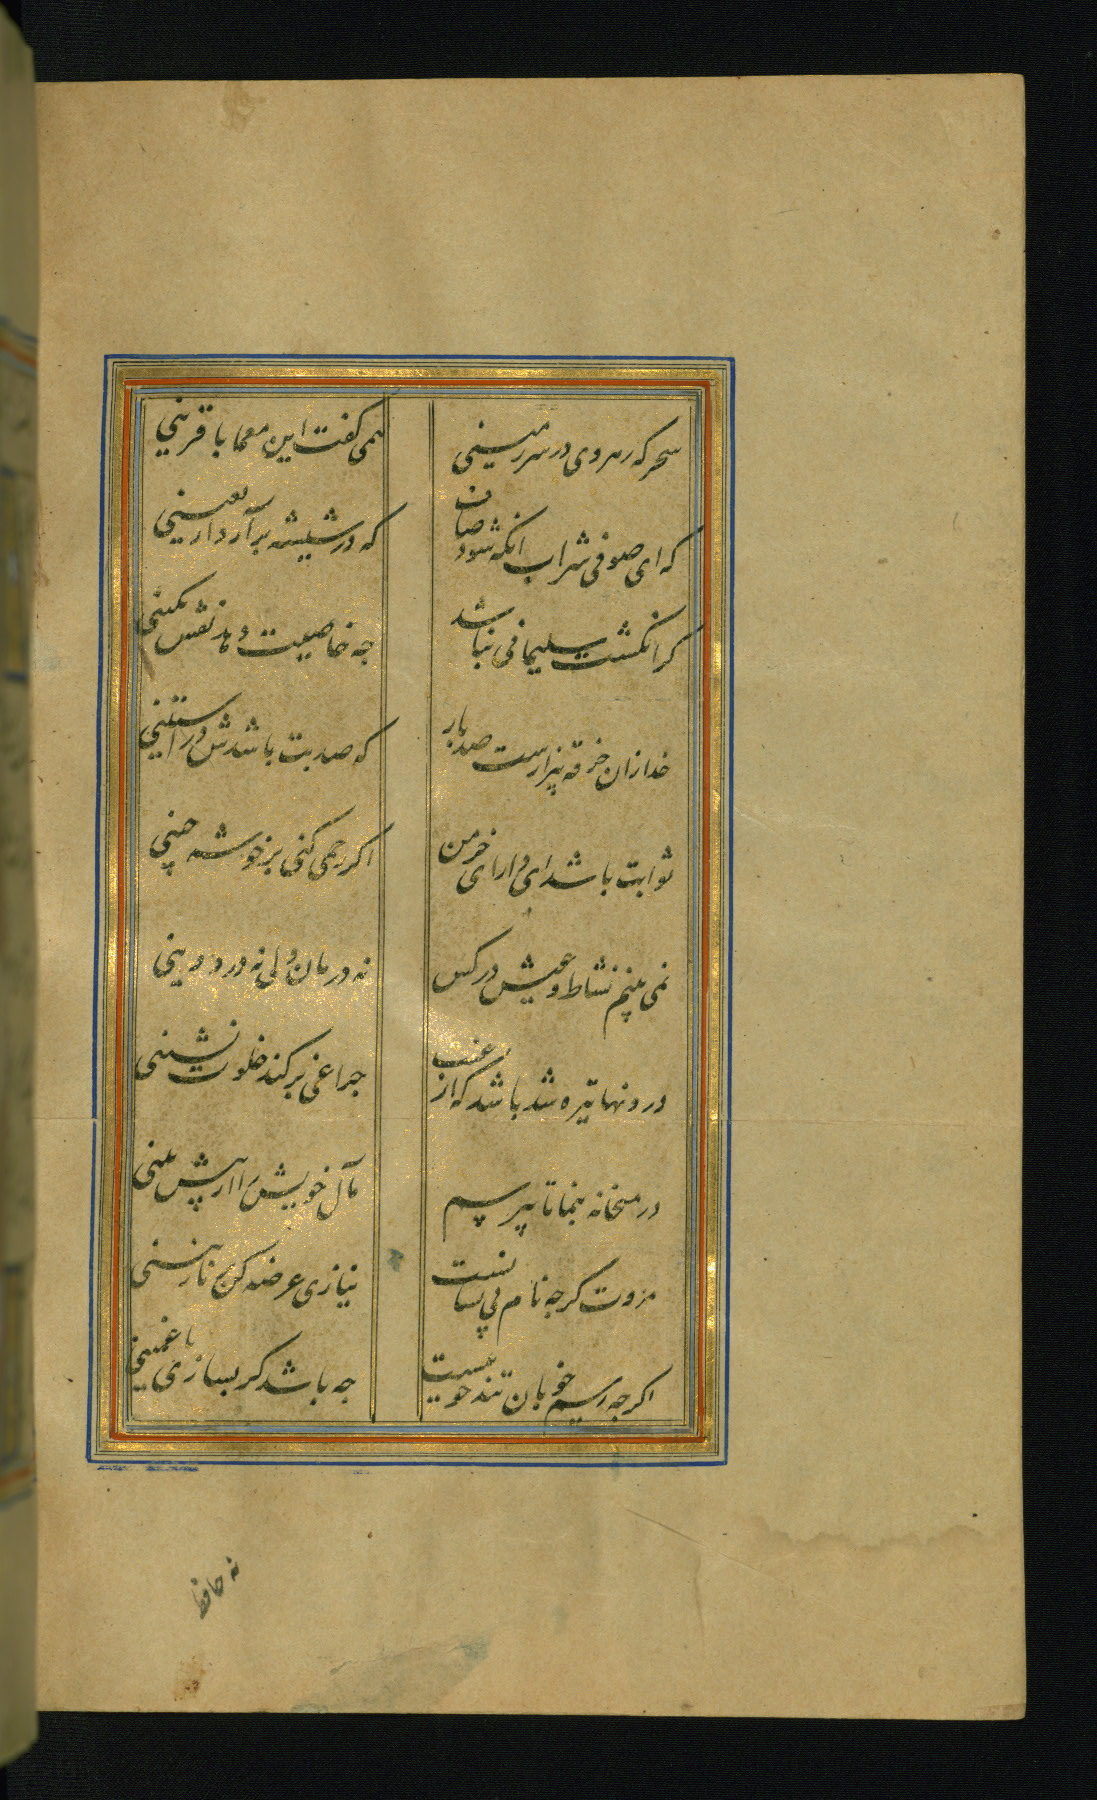 سحرکه رهروی در سرزمینی
همی کفت این معما با قرینی
که ای صوفی شراب انکه شود صاف
که در شیشه برآرد اربعینی
کر انکشت سلیمانی نباشد
چه خاصیت دهد نقش نکینی
خدا زان خرقه بیزارست صد بار
که صد بت باشدش در آستینی
ثوابت باشد ای دارای خرمن
اکر رحمی کنی بر خوشه چینی
نمی بینم نشاط و عیش در کس
نه درمان دلی نه درد دینی
درونها تیره شد باشد که از غیب
چراغی بر کند خلوت نشینی
در میخانه بنما تا بپرسم
مآل خویش را از پیش بینی
مروت کرچه نام بی نشانست
نیازی عرضه کن بر نازنینی
اکرچه رسم خوبان تندخوییست
چه باشد کر بسازی با غمینی
نه حافظ